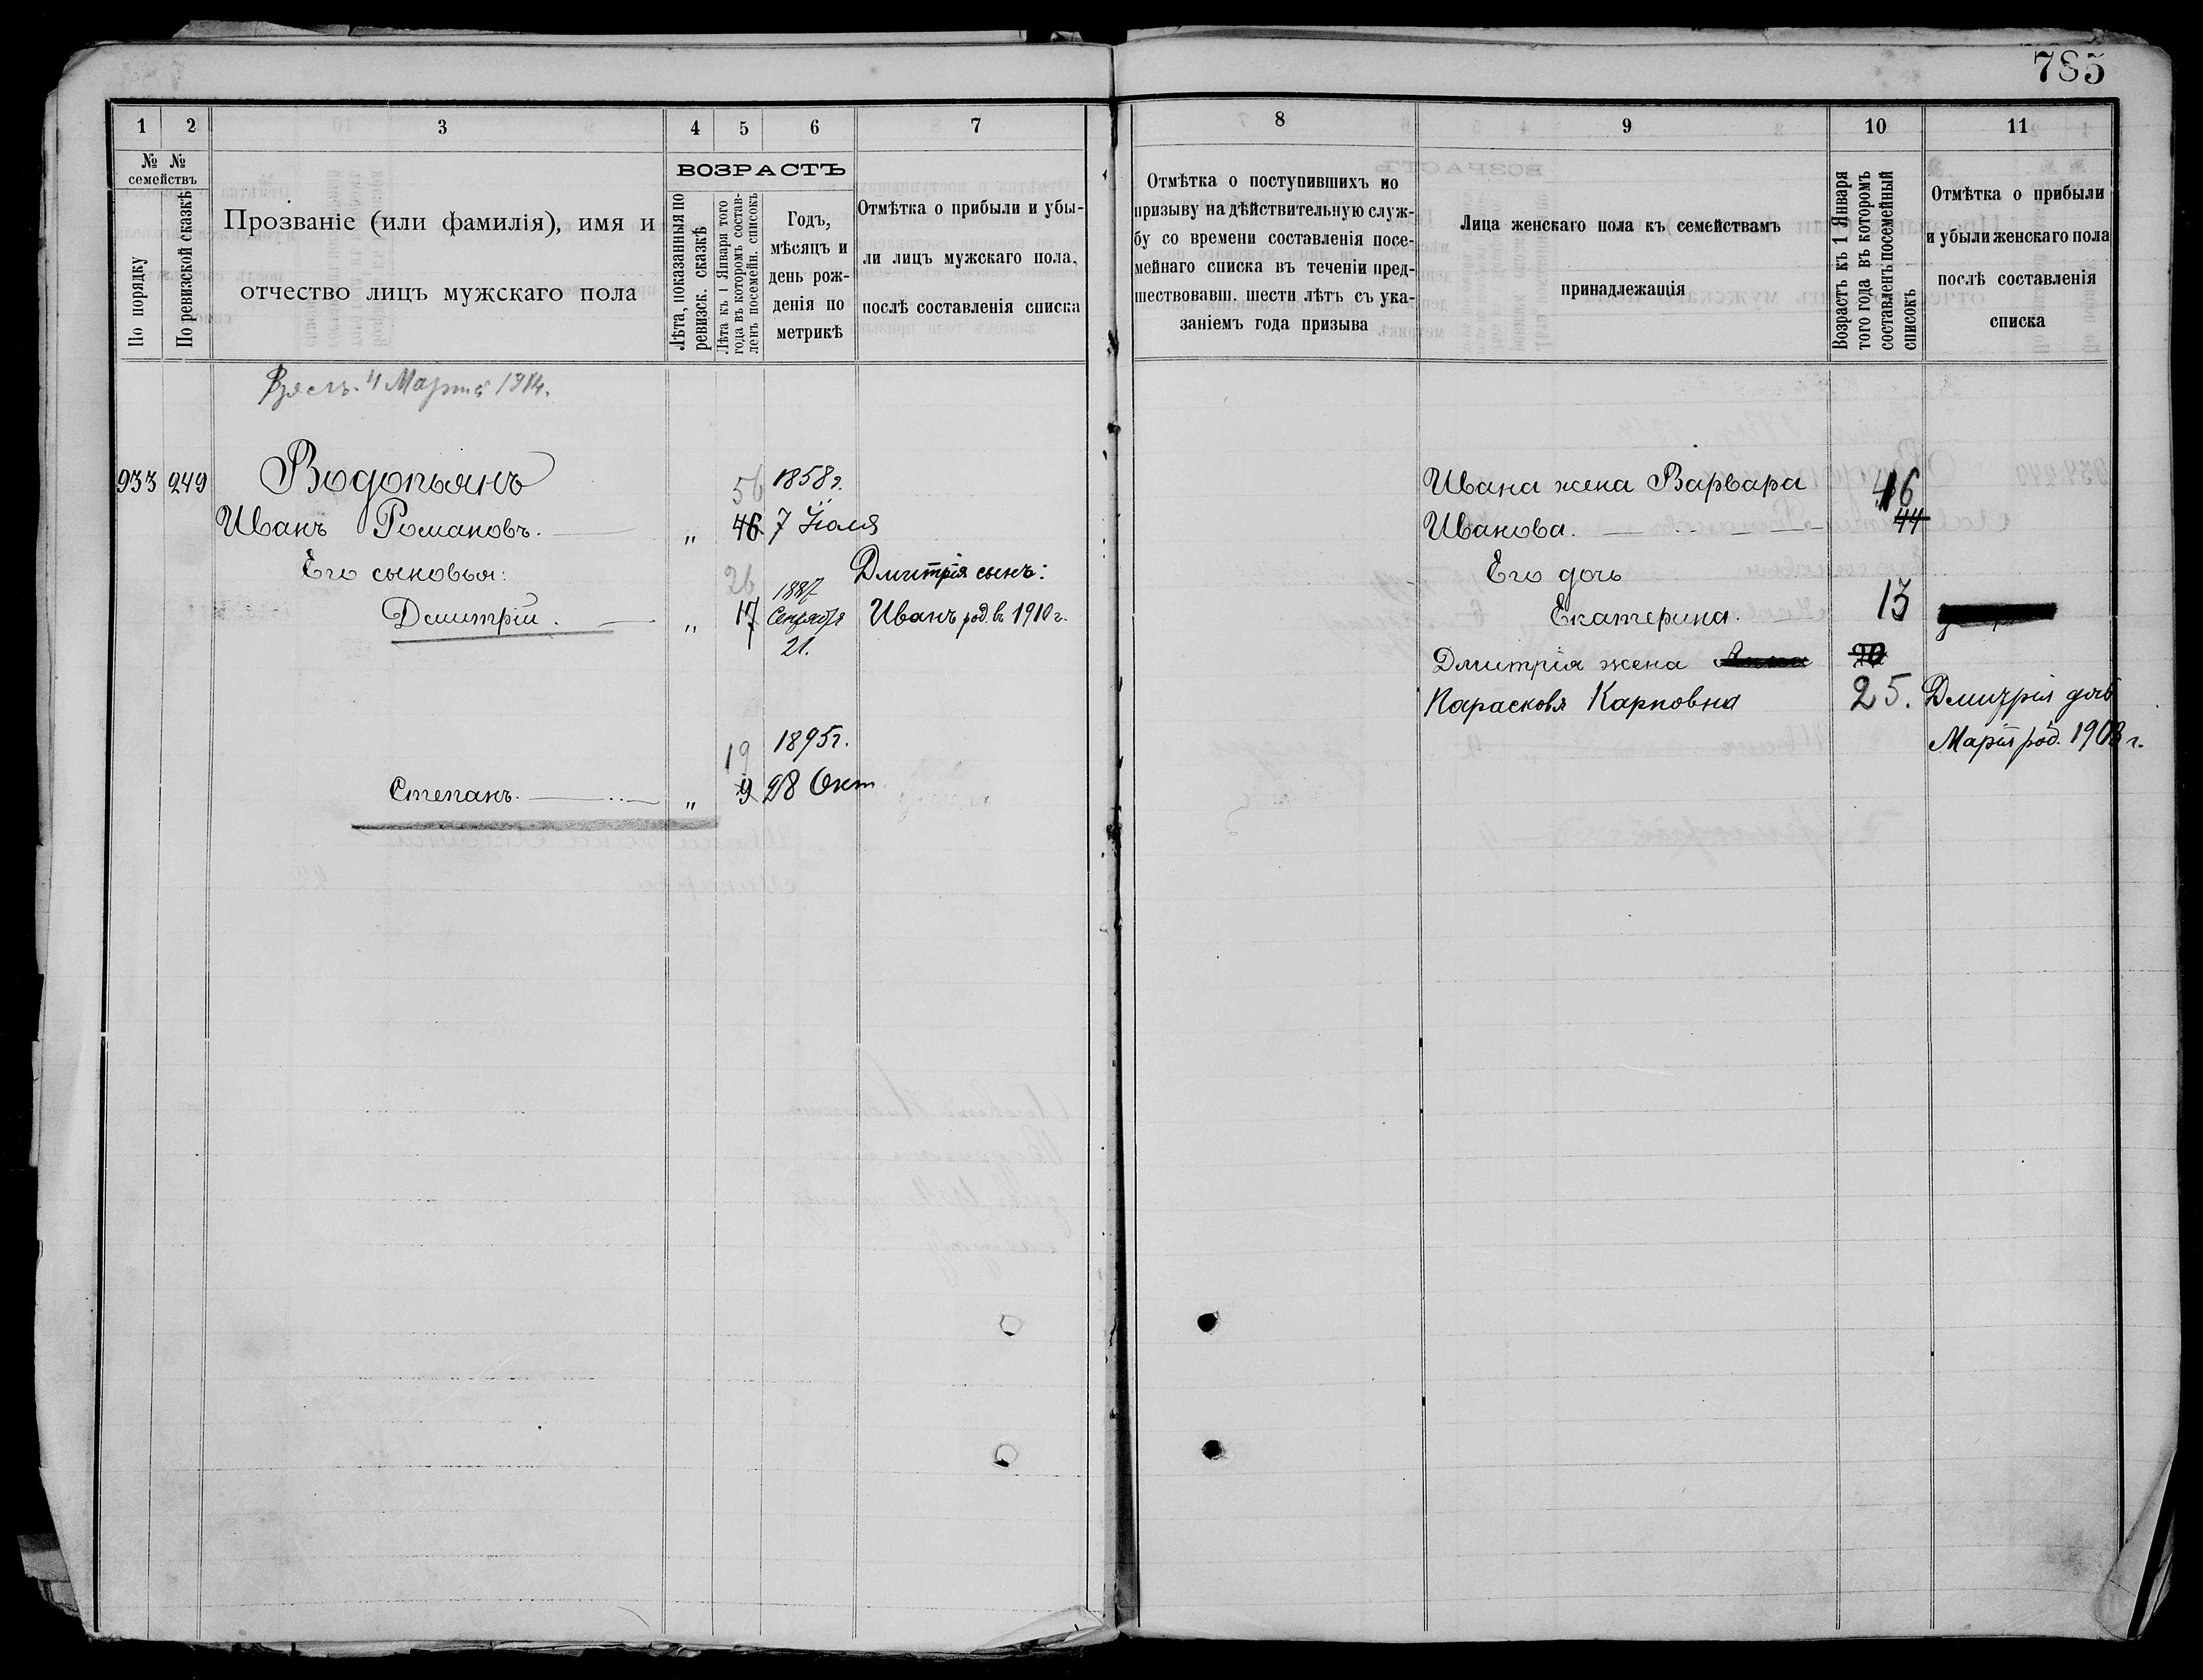 785
1 2 3 4 5 6 7
№ № семействъ
По порядку
По ревизской сказкѣ
Прозваніе (или фамилія), имя и
отчество лицъ мужскаго пола
ВОЗРАСТЪ
Лѣта, показанныя по
ревизск. сказкѣ
Лѣта къ 1 Января того
года въ которомъ состав-
ленъ посемейн. списокъ
Годъ,
мѣсяцъ и
день рож-
денія по
метрикѣ
Отмѣтка о прибыли и убы-
ли лицъ мужскаго пола,
послѣ составленія списка
4 Марта 1914.
933 249 Водопьянъ 56 1858 г.
Иванъ Романовъ. „ 46 7 Іюля
Его сыновья: 26 1887 Дмитрія сынъ:
Дмитрій. „ 17 Сентября Иванъ род. въ 1910 г.
21.
19 1895 г.
Степанъ. „ 9 28 Окт
8 9 10 11
Отмѣтка о поступившихъ по
призыву на дѣйствительную служ-
бу со времени составленія посе-
мейнаго списка въ теченіи пред-
шествовавш. шести лѣтъ съ ука-
заніемъ года призыва
Лица женскаго пола къ семействамъ
принадлежащія
Возрастъ къ 1 Января
того года въ которомъ
составленъ посемейный
списокъ
Отмѣтка о прибыли
и убыли женскаго пола
послѣ составленія
списка
Ивана жена Варвара 46
Иванова. 44
Его дочь
Екатерина. 13
Дмитрія жена 20
Парасковья Карповна 25. Дмитрія дочь
Марія род. 1908 г.